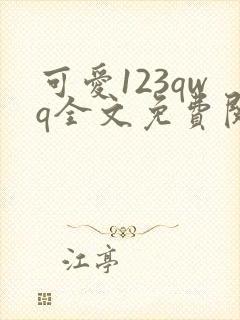 可愛123qw
q全文免費閱
江亭